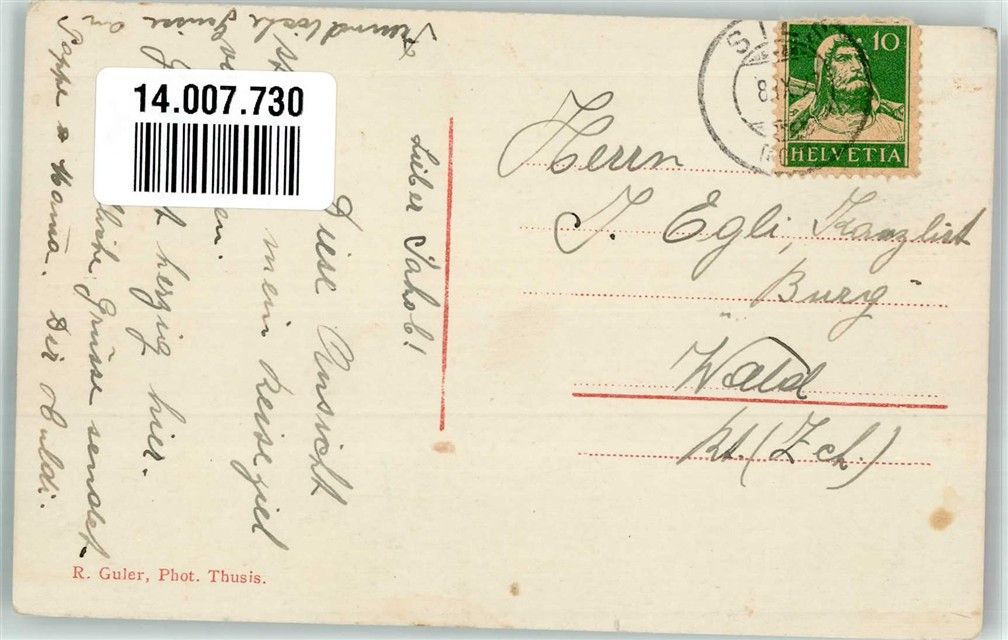 14.007.730
S
10
HELVETIA
Herrn
J. Egli, Kanzlist
Burg
Wald
Kt. (Zch.)
Lieber Jakob!
Diese Ansicht
mein Reiseziel
herzig hier.
Grüsse sendet
Dir Huldi.
Freundliche Grüsse an
Pappe & Mama.
R. Guler, Phot. Thusis.